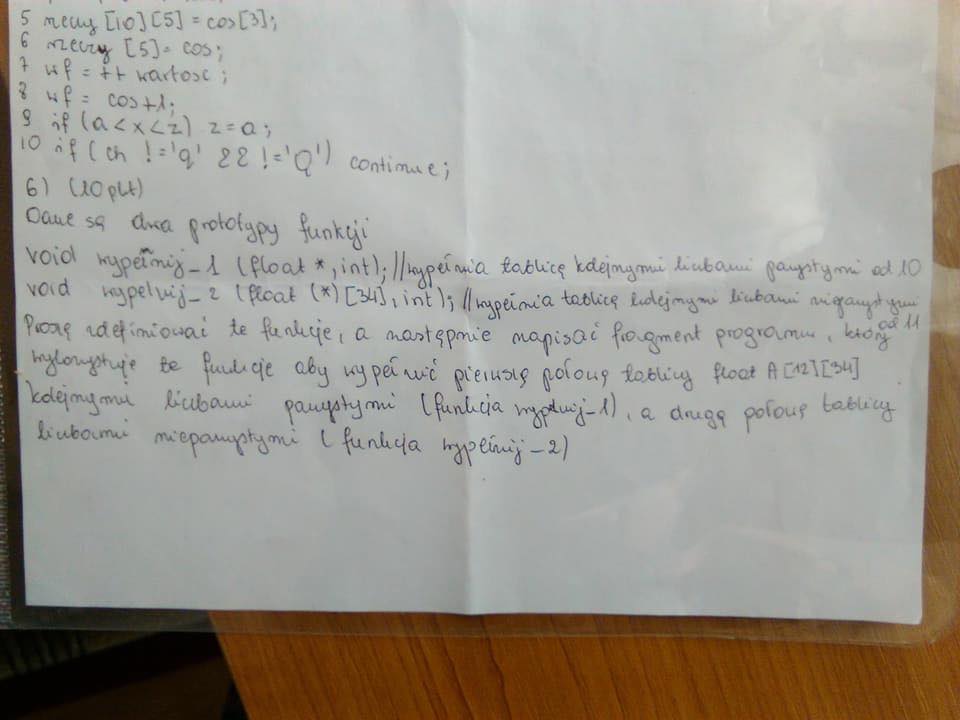 5 rzeczy [10][5] = cos[3];
6 rzeczy [5] = cos;
7 wf = ++ wartosc;
8 wf = cos+1;
9 if (a < x < z) z = a;
10 if ( ch != 'q' && != 'Q') continue;
6) (10 pkt)
Dane są dwa prototypy funkcji
void wypełnij_1 (float *, int); //wypełnia tablicę kolejnymi liczbami parzystymi od 10
void wypelnij_2 (float (*)[34], int); //wypełnia tablicę kolejnymi liczbami nieparzystymi od 11
Proszę zdefiniować te funkcje, a następnie napisać fragment programu, który
wykorzystuje te funkcje aby wypełnić pierwszą połowę tablicy float A [12][34]
kolejnymi liczbami parzystymi (funkcja wypełnij_1), a drugą połowę tablicy
liczbami nieparzystymi (funkcja wypełnij_2)